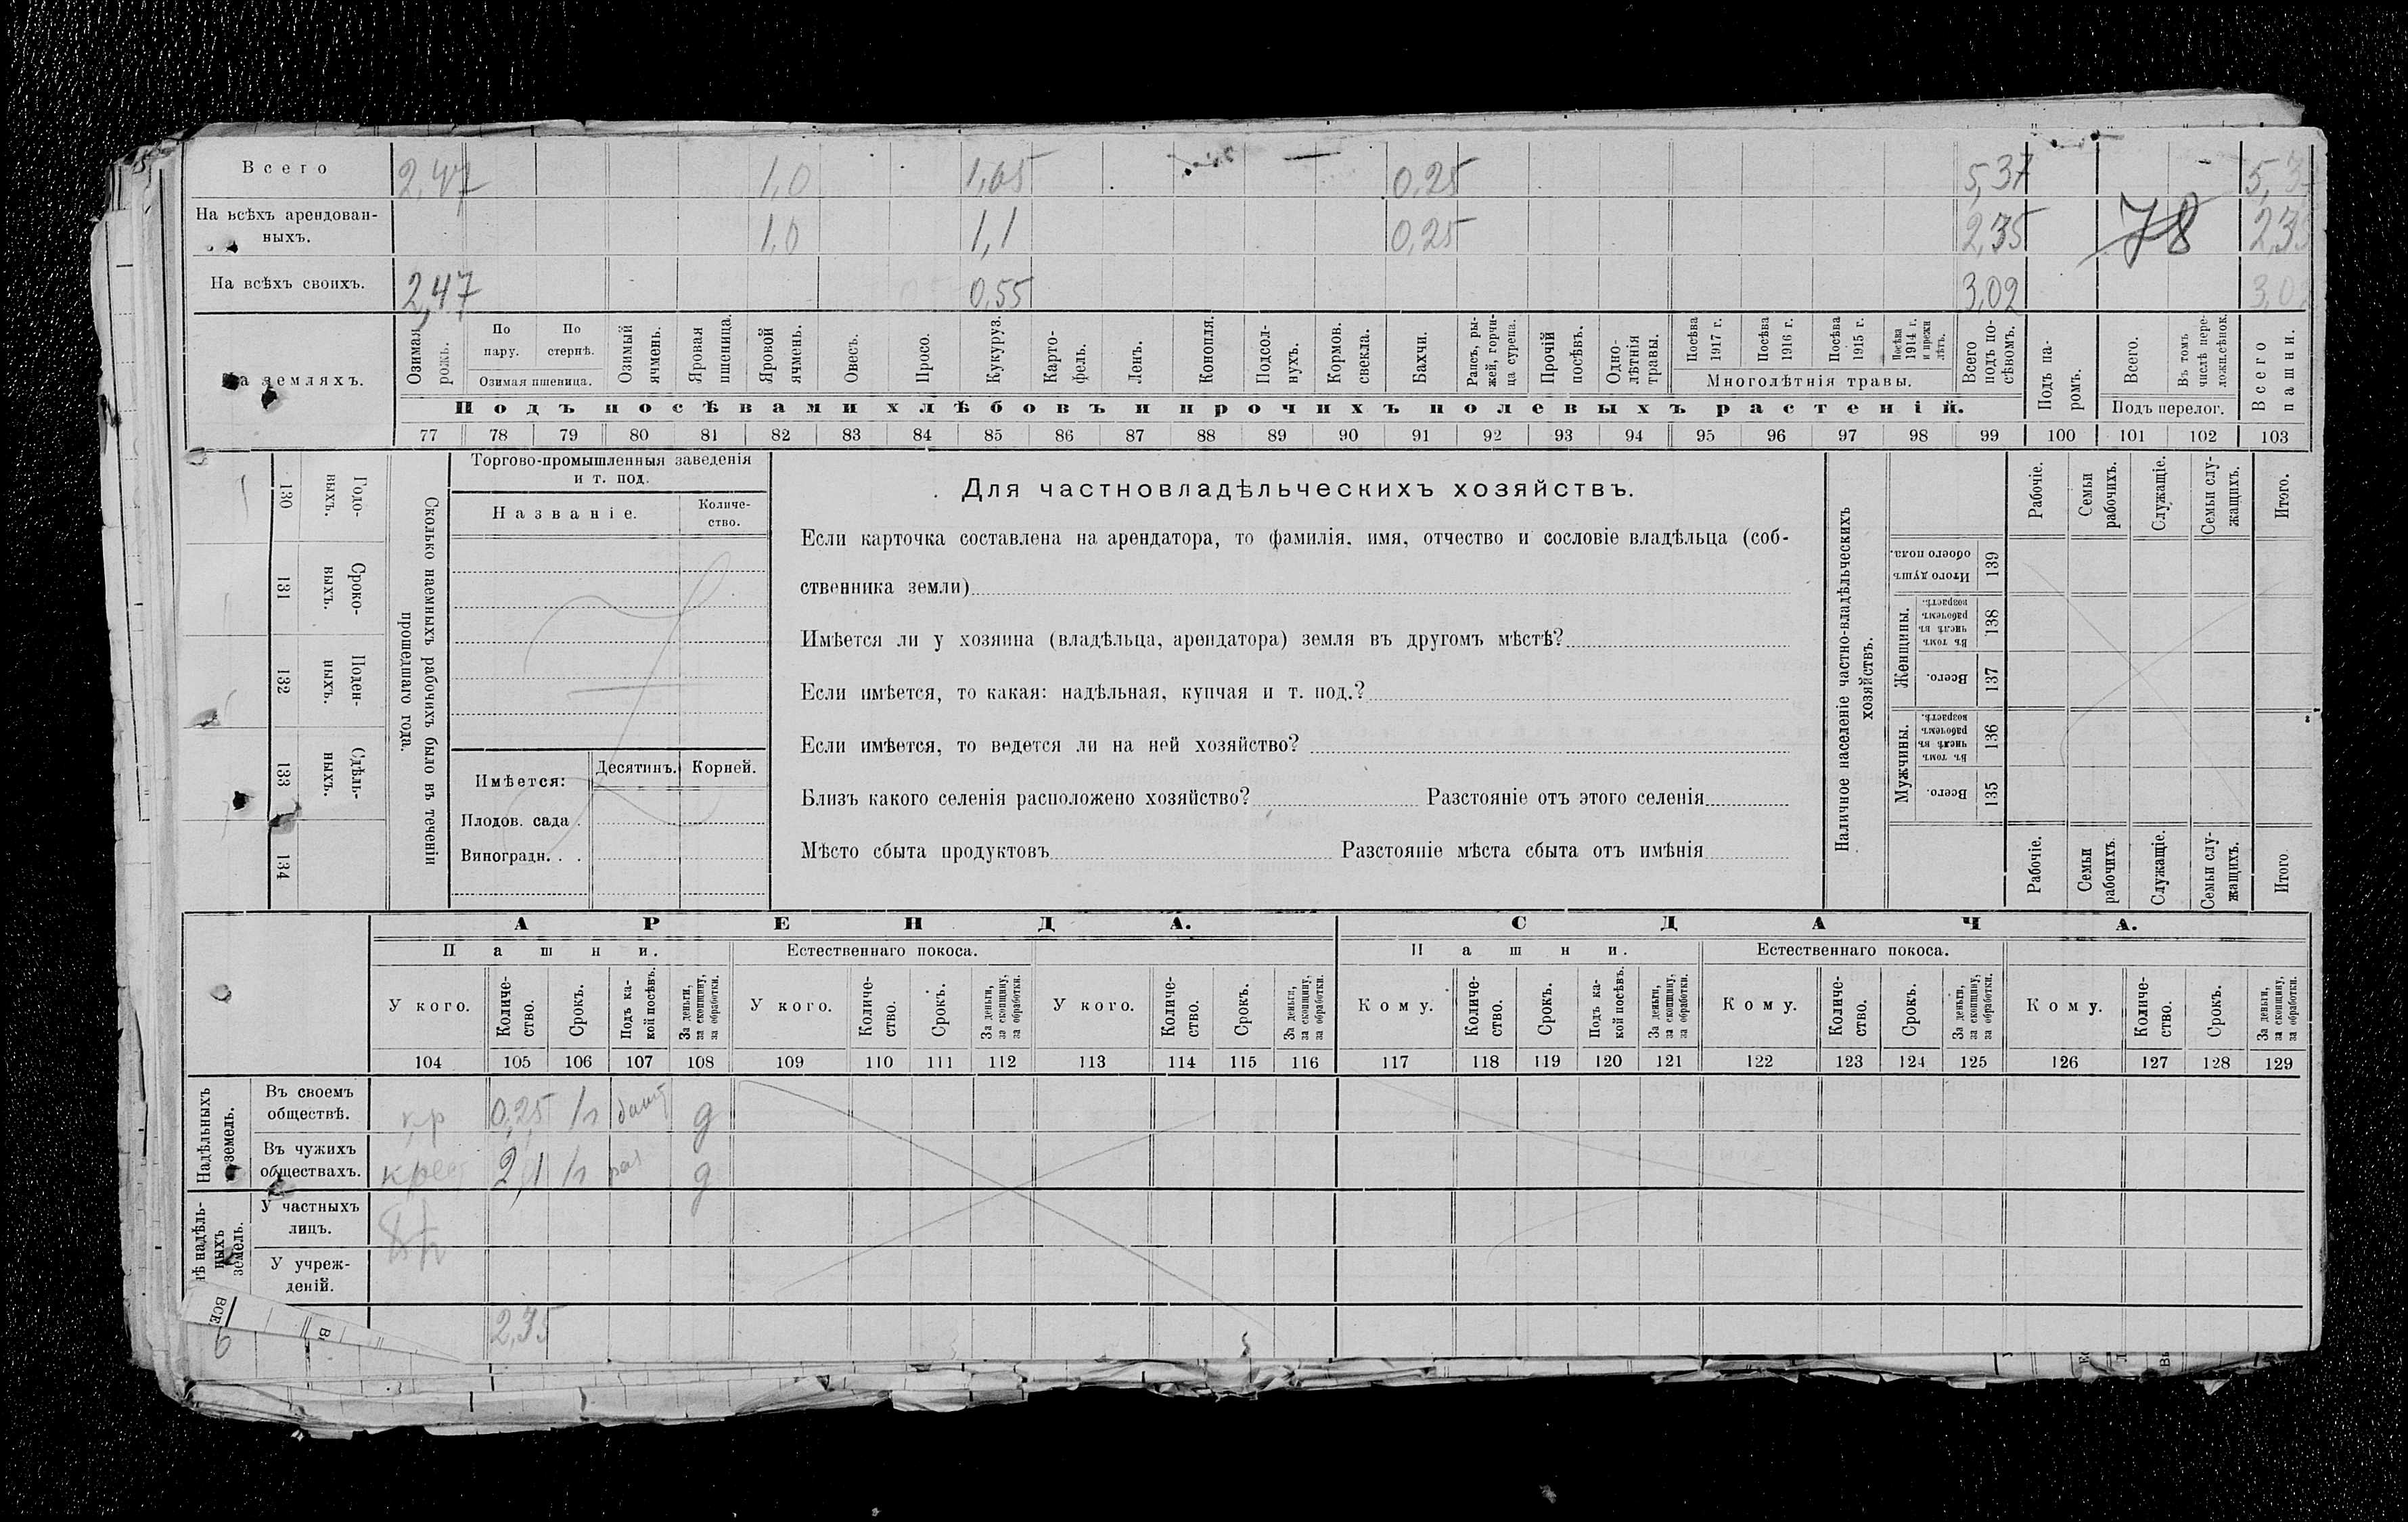 Всего 2,47 1,0 1,65 0,25 5,37
На всѣхъ арендован-
ныхъ. 1,0 1,1 0,25 2,35 78
На всѣхъ своихъ. 2,47 0,55 3,02 3,0
земляхъ.
Озимая рожь.
По пару.
По стернѣ.
Озимая пшеница.
Озимый ячмень.
Яровая пшеница.
Яровой ячмень.
Овесъ.
Просо.
Кукуруз.
Карто-
фель.
Ленъ.
Конопля.
Подсол-
нухъ.
Кормов. свекла.
Бахчи.
Рапсъ, ры-
жей, горчи-
ца сурепа.
Прочій посѣвъ.
Одно-
лѣтнія травы.
Посѣва 1917 г.
Посѣва 1916 г.
Посѣва 1915 г.
Посѣва 1914 г. и прежн лѣтъ.
Многолѣтнія травы.
Всего подъ по-
сѣвомъ.
Подъ па-
ромъ.
Всего.
Въ томъ числѣ пере-
ложн.сѣнок.
Подъ перелог.
Всего пашни.
Подъ посѣвами хлѣбовъ и прочихъ полевыхъ растеній.
77 78 79 80 81 82 83 84 85 86 87 88 89 90 91 92 93 94 95 96 97 98 99 100 101 102 103
130 Годо-
выхъ.
131 Сроко-
выхъ.
132 Поден-
ныхъ.
133 Сдѣль-
ныхъ.
134
Сколько наемныхъ рабочихъ было въ теченіи
прошедшаго года.
Торгово-промышленныя заведенія
и т. под.
Названіе. Количе-
ство.
Имѣется: Десятинъ. Корней.
Плодов. сада .
Виноградн. . .
Для частновладѣльческихъ хозяйствъ.
Если карточка составлена на арендатора, то фамилія, имя, отчество и сословіе владѣльца (соб-
ственника земли)
Имѣется ли у хозяина (владѣльца, арендатора) земля въ другомъ мѣстѣ?
Если имѣется, то какая: надѣльная, купчая и т. под.?
Если имѣется, то ведется ли на ней хозяйство?
Близъ какого селенія расположено хозяйство? Разстояніе отъ этого селенія
Мѣсто сбыта продуктовъ Разстояніе мѣста сбыта отъ имѣнія
Наличное населеніе частно-владѣльческихъ
хозяйствъ.
Рабочіе.
Семьи рабочихъ.
Служащіе.
Семьи слу-
жащихъ.
Итого.
Итого душъ обоего пола. 139
Женщины.
Въ томъ числѣ въ рабочемъ возрастѣ. 138
Всего. 137
Мужчины.
Въ томъ числѣ въ рабочемъ возрастѣ. 136
Всего. 135
Рабочіе.
Семьи рабочихъ.
Служащіе.
Семьи слу-
жащихъ.
Итого
АРЕНДА. СДАЧА.
Пашни. Естественнаго покоса. Пашни. Естественнаго покоса.
У кого.
Количе-
ство.
Срокъ.
Подъ ка-
кой посѣвъ.
За деньги, за скопщину, за обработки.
У кого.
Количе-
ство.
Срокъ.
За деньги, за скопщину, за обработки.
У кого.
Количе-
ство.
Срокъ.
За деньги, за скопщину, за обработки.
Кому.
Количе-
ство.
Срокъ.
Подъ ка-
кой посѣвъ.
За деньги, за скопщину, за обработки.
Кому.
Количе-
ство.
Срокъ.
За деньги, за скопщину, за обработки.
Кому.
Количе-
ство.
Срокъ.
За деньги, за скопщину, за обработки.
104 105 106 107 108 109 110 111 112 113 114 115 116 117 118 119 120 121 122 123 124 125 126 127 128 129
Надѣльныхъ
земель.
Въ своемъ
обществѣ. кр 0,25 д
Въ чужихъ
обществахъ. крес 2,1 д
надѣль-
ныхъ
земель.
У частныхъ
лицъ.
У учреж-
деній.
ВСЕ
2,35